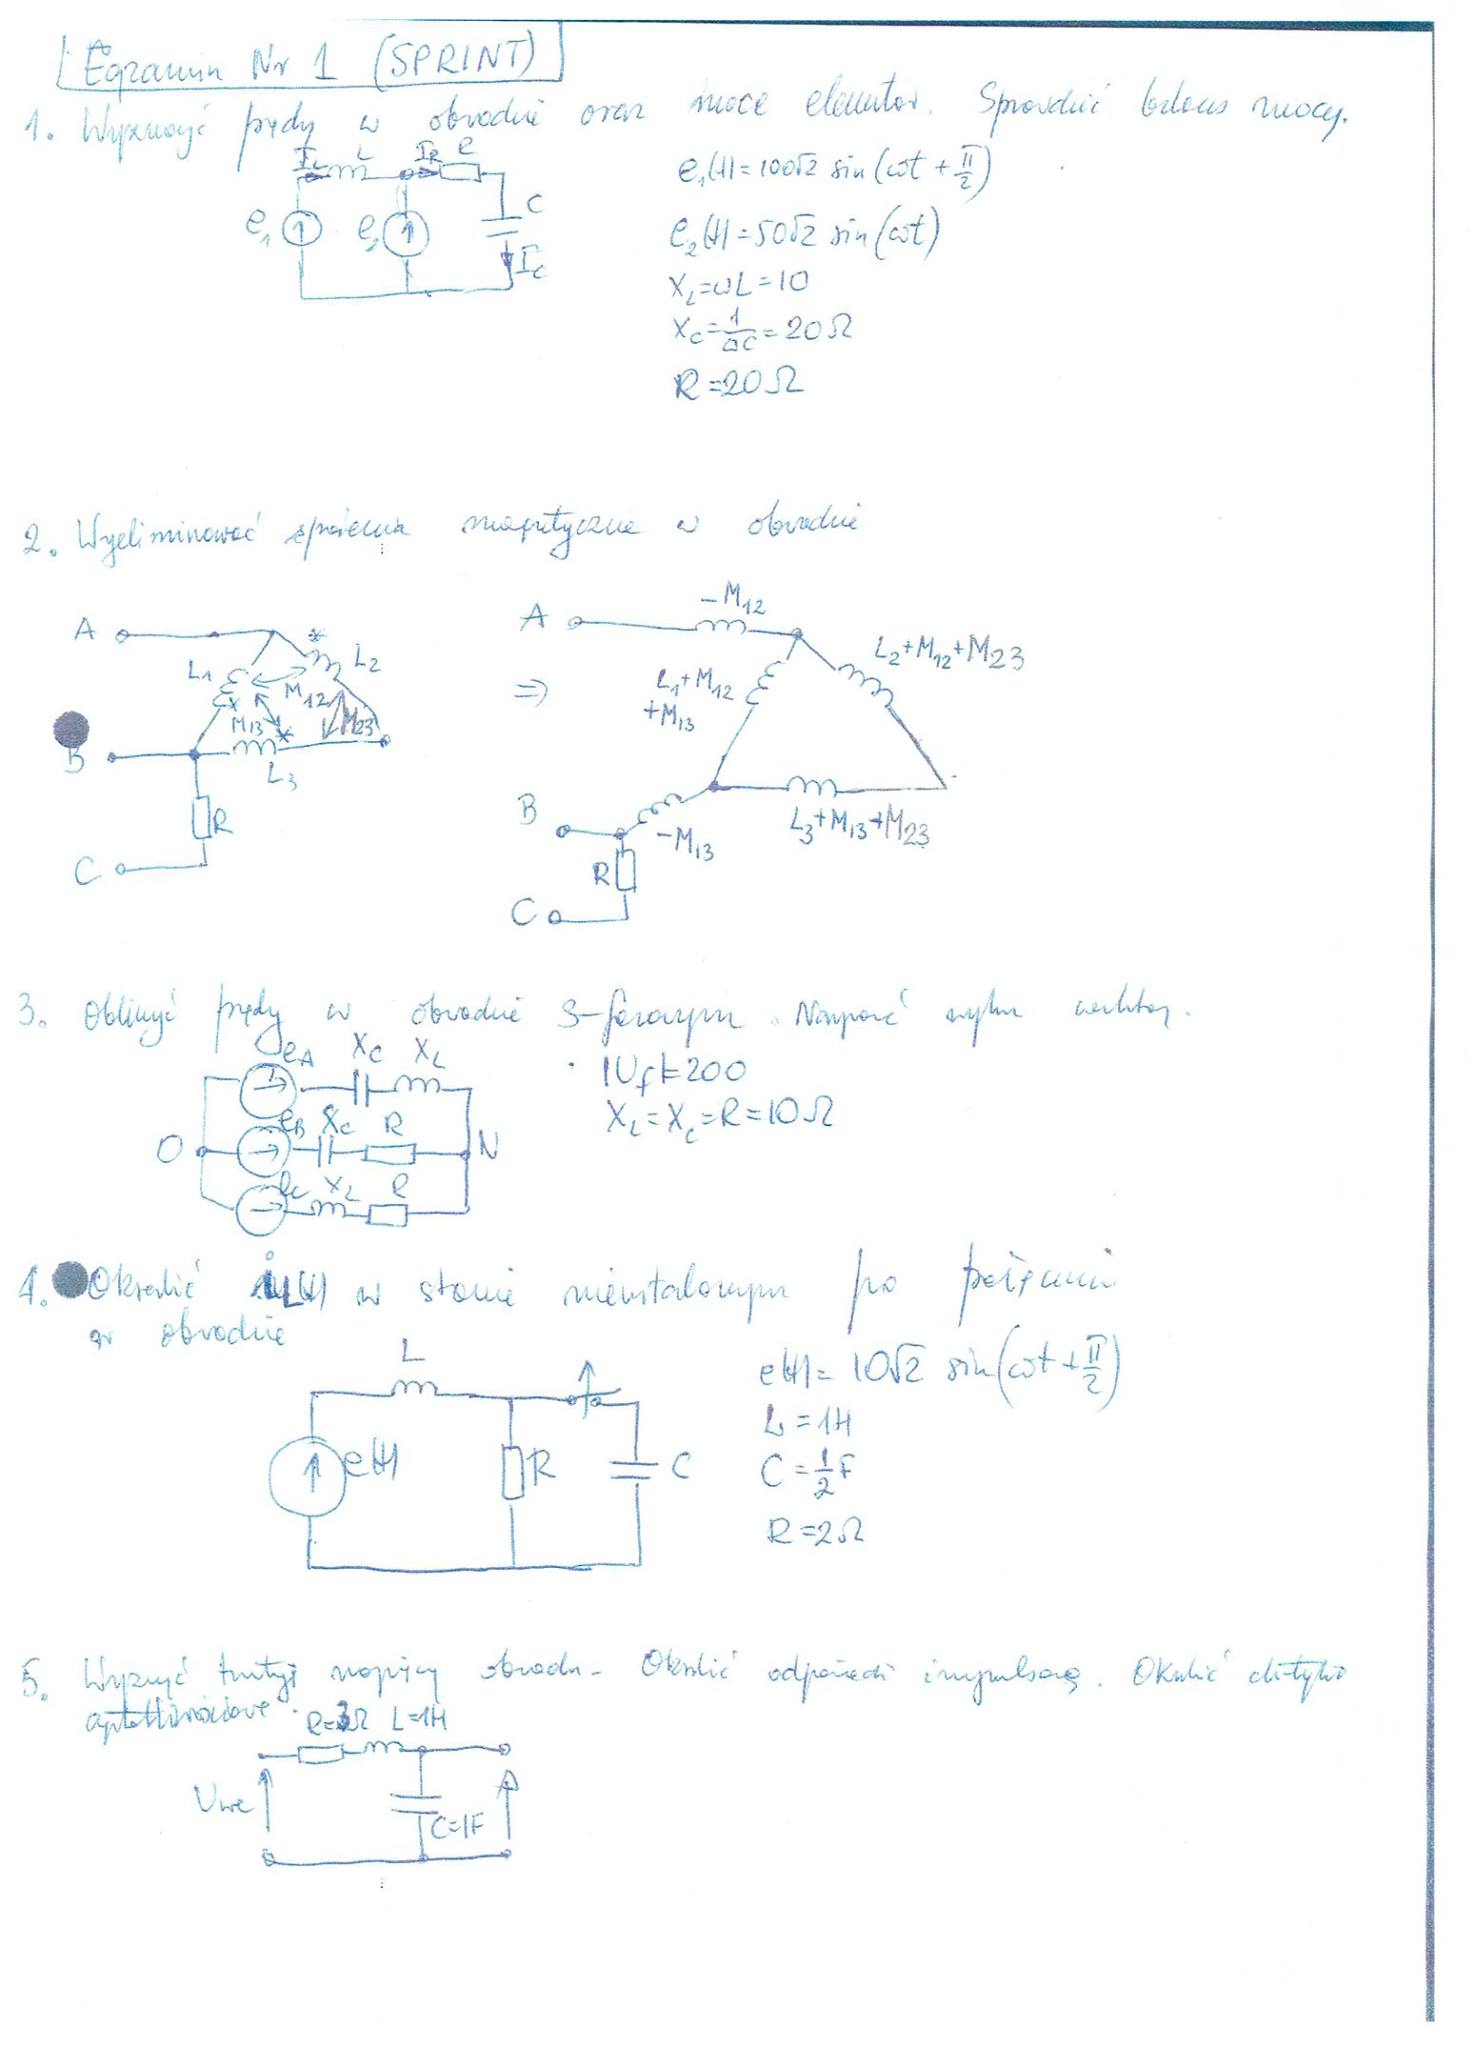 Egzamin Nr 1 (SPRINT)
1. Wyznaczyć prądy w obwodzie oraz moce elementów. Sprawdzić bilans mocy.
I_L L I_R e
e₁ e₂ C
I_C
e₁(t)=100√2 sin(ωt + π/2)
e₂(t)=50√2 sin(ωt)
X_L=ωL=10
X_C=1/ωC=20Ω
R=20Ω
2. Wyeliminować sprzężenia magnetyczne w obwodzie
A * L₂
L₁ M₁₂
B M₁₃ * M₂₃
L₃
R
C
⇒
A -M₁₂
L₁+M₁₂+M₁₃
L₂+M₁₂+M₂₃
B -M₁₃ L₃+M₁₃+M₂₃
R
C
3. Obliczyć prądy w obwodzie 3-fazowym. Narysować wykres wektor.
e_A X_C X_L
O e_B X_C R N
e_C X_L R
|U_f|=200
X_L=X_C=R=10Ω
4. Określić i_L(t) w stanie nieustalonym po przełączeniu
w obwodzie
L
e(t) R C
e(t)=10√2 sin(ωt+π/2)
L=1H
C=1/2F
R=2Ω
5. Wyznaczyć napięcą obwodu. Określić odpowiedź impulsową. Określić
R=3Ω L=1H
Uwe
C=1F